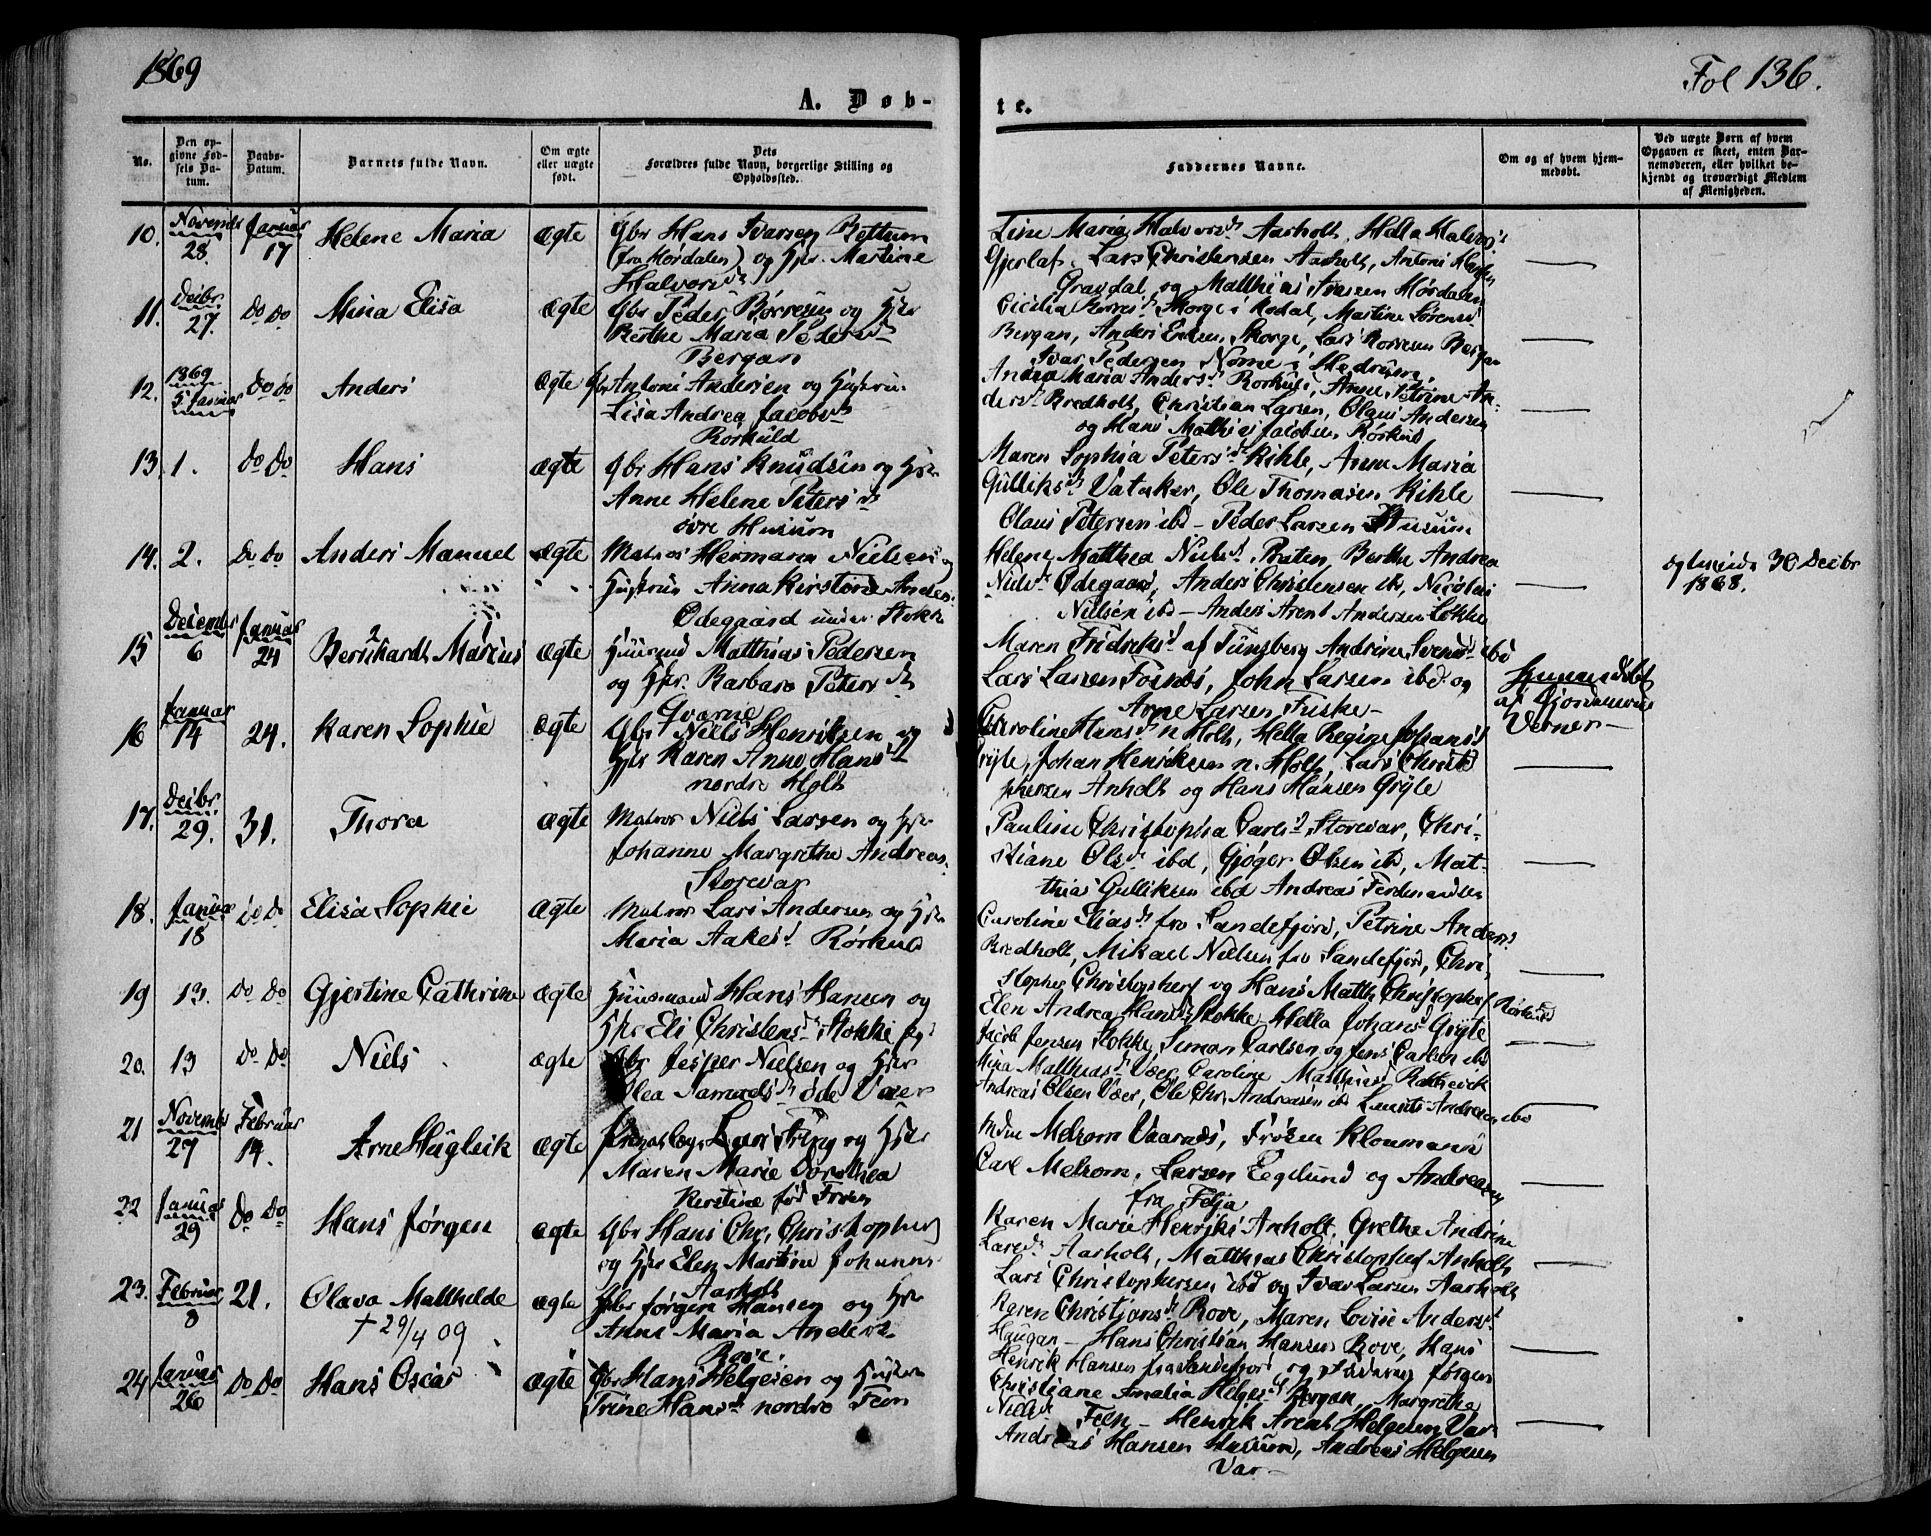 1869
Fol 136.
A. Døb-
te.
No.
Den op-
givne Fød-
sels Da-
tum.
Daabs-
Datum.
Barnets fulde Navn.
Om ægte
eller uægte
født.
Dets
Forældres fulde Navn, borgerlige Stilling og
Opholdssted.
Faddernes Navne.
Om og af hvem hjem-
medøbt.
Ved uægte Børn af hvem
Opgaven er skeet, enten Bar-
nemoderen, eller hvilket be-
kjendt og troværdigt Medlem
af Menigheden.
10. Novembr 28. Januar 17 Helene Maria ægte Gbr Hans Ivarsen Bettum
(fra Mørdalen) og Hstr. Martine
Halvorsd
Line Maria Halvorsd Aarholt, Hella Halvorsd
Gjerlaf, Lars Christensen Aarholt, Antoni
Gravdal og Matthias Ivarsen Mørdalen
11. Decbr. 27. Do Do Mina Elisa ægte Gbr Peder Børresen og Hstr
Berthe Maria Pedersd
Bergan
Cicilia Børresd Skorge i Kodal, Martine Sørensd
Bergan, Anders Skorge, Lars Borresen Bergan
Ivar Pedersen Nome i Hedrum.
12. 1869 5 Januar Do Do Anders ægte Gbr Antoni Andersen og Hustru
Lisa Andrea Jacobsd
Rorkuld
Andrea Maria Andersd Rorkul, Anne Petrine An-
dersd Bredholt, Christian Larsen, Olaus Andersen
og Hans Mathias Jacobsen Rørkul
13. 1. Do Do Hans ægte Gbr Hans Knudsen og Hstr
Anne Helene Petersd
øvre Husum
Maren Sophia Petersd Kihle, Anne Maria
Gulliksd Vataker, Ole Thomasen Kihle
Olaus Petersen ibd - Peder Larsen Husum
14. 2. Do Do Anders Manuel ægte Matros Hermann Nielsen og
Hustrue Anna Kirstine Anders
Ødegaard under Stokke
Helene Matthea Nielsd Braten, Berthe Andrea
Nielsd Ødegaard, Anders Christensen ib, Nicolai
Nielsen ibd - Anders Arent Andersen Løkke
30 Decbr
1868.
15 Decembr 6 Januar 24 Bernhardt Marius ægte Huusmd Matthias Pedersen
og Hstr. Barbara Petersd
Qværne
Maren Fridriksd af Tunsberg Andrine Svensd ibd
Lars Larsen Fosnes, John Larsen ibd og
Arne Larsen Fuske -
Hjemmedøbt
af Gjordemoder
Verner -
16 Januar 14 24. Karen Sophie ægte Gbr Niels Henriksen og
Hstr Karen Anne Hansd
nordre Holt
Caroline Hansd n Holt, Hella Regine Johansd
Gryte, Johan Henriksen n. Holt, Lars Christo
phersen Anholt og Hans Hansen Gryte
17. Decbr 29. 31. Thora ægte Matros Niels Larsen og Hstr
Johanne Margrethe Andreas.
Storevar
Pauline Christopha Carlsd Storevar, Chri-
stiane Olsd ibd, Gjøger Olsen ib, Mat-
thias Gulliksen ibd Andreas Ferdinandsen
18. Januar 18 Do Do Elisa Sophie ægte Matros Lars Andersen og Hstr
Maria Aakesd Rørkul
Caroline Eliasd fra Sandefjord, Petrine Andersd
Bredholt, Mikael Nielsen fra Sandefjord, Chri
stopher Christophers og Hans Matth Christophers Rørkul
19 13. Do Do Gjertine Cathrine ægte Huusmand Hans Hansen og
Hstr Eli Christensd Stokke
Elen Andrea Hansd Stokke - Hella Johansd Gryte
Jacob Jensen Stokke, Simon Carlsen og Jens Carlsen ibd
20. 13 Do Do Niels ægte Gbr Jesper Nielsen og Hstr
Olea Samuelsd øde Væer
Mina Matthiasd Væer, Caroline Mathiasd Rakkevik
Andreas Olsen Væer, Ole Chr. Andreasen ib Laurits Andreasen ibd
21 Novembr 29 Februar 14. Arne Hugleik ægte Lars Tring og Hstr
Maren Marie Dorothea
Kerstine fød Frøen
Mdm Melsom Vaarnæs, Frøken Kloumann
Carl Melsom, Larsen Eeglund og Andreasen
fra Felja
22 Januar 29 Do Do Hans Jørgen ægte Gbr Hans Chr. Christophers
og Hstr Elen Martine Johanns
Aarholt
Karen Marie Henriks Anholt, Grethe Andrine
Larsd Aarholt, Matthias Christophers Anholt
Lars Christophersen ibd og Ivar Larsen Aarholt
23. Februar 8 21. Olava Mathilde ægte Gbr Jørgen Hansen og Hstr
+ 29/4 09
Anne Maria Andersd
Bove.
Karen Christiansd Rove, Maren Lovise Andersd
Haugan - Hans Christian Hansen Rove, Hans
Henrik Hansen fra Sandefjord og Jørgen
24 Januar 26 Do Do Hans Oscar ægte Gbr Hans Helgesen og Hustru
Trine Hansd nordre Feen
Christiane Amalia Helgesd Bergan, Margrethe
Nielsd Feen - Henrik Arent Helgesen Var
Andreas Hansen Husum, Andreas Helgesen
Var -